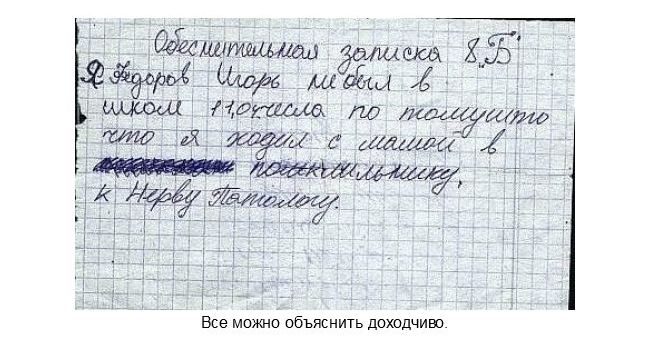 Обеснительная записка 8„Б"
Я Федоров Игорь небыл в
школи 11,04числа по томушто
что я ходил с мамой в
к Нерву Патологу.
Все можно объяснить доходчиво.